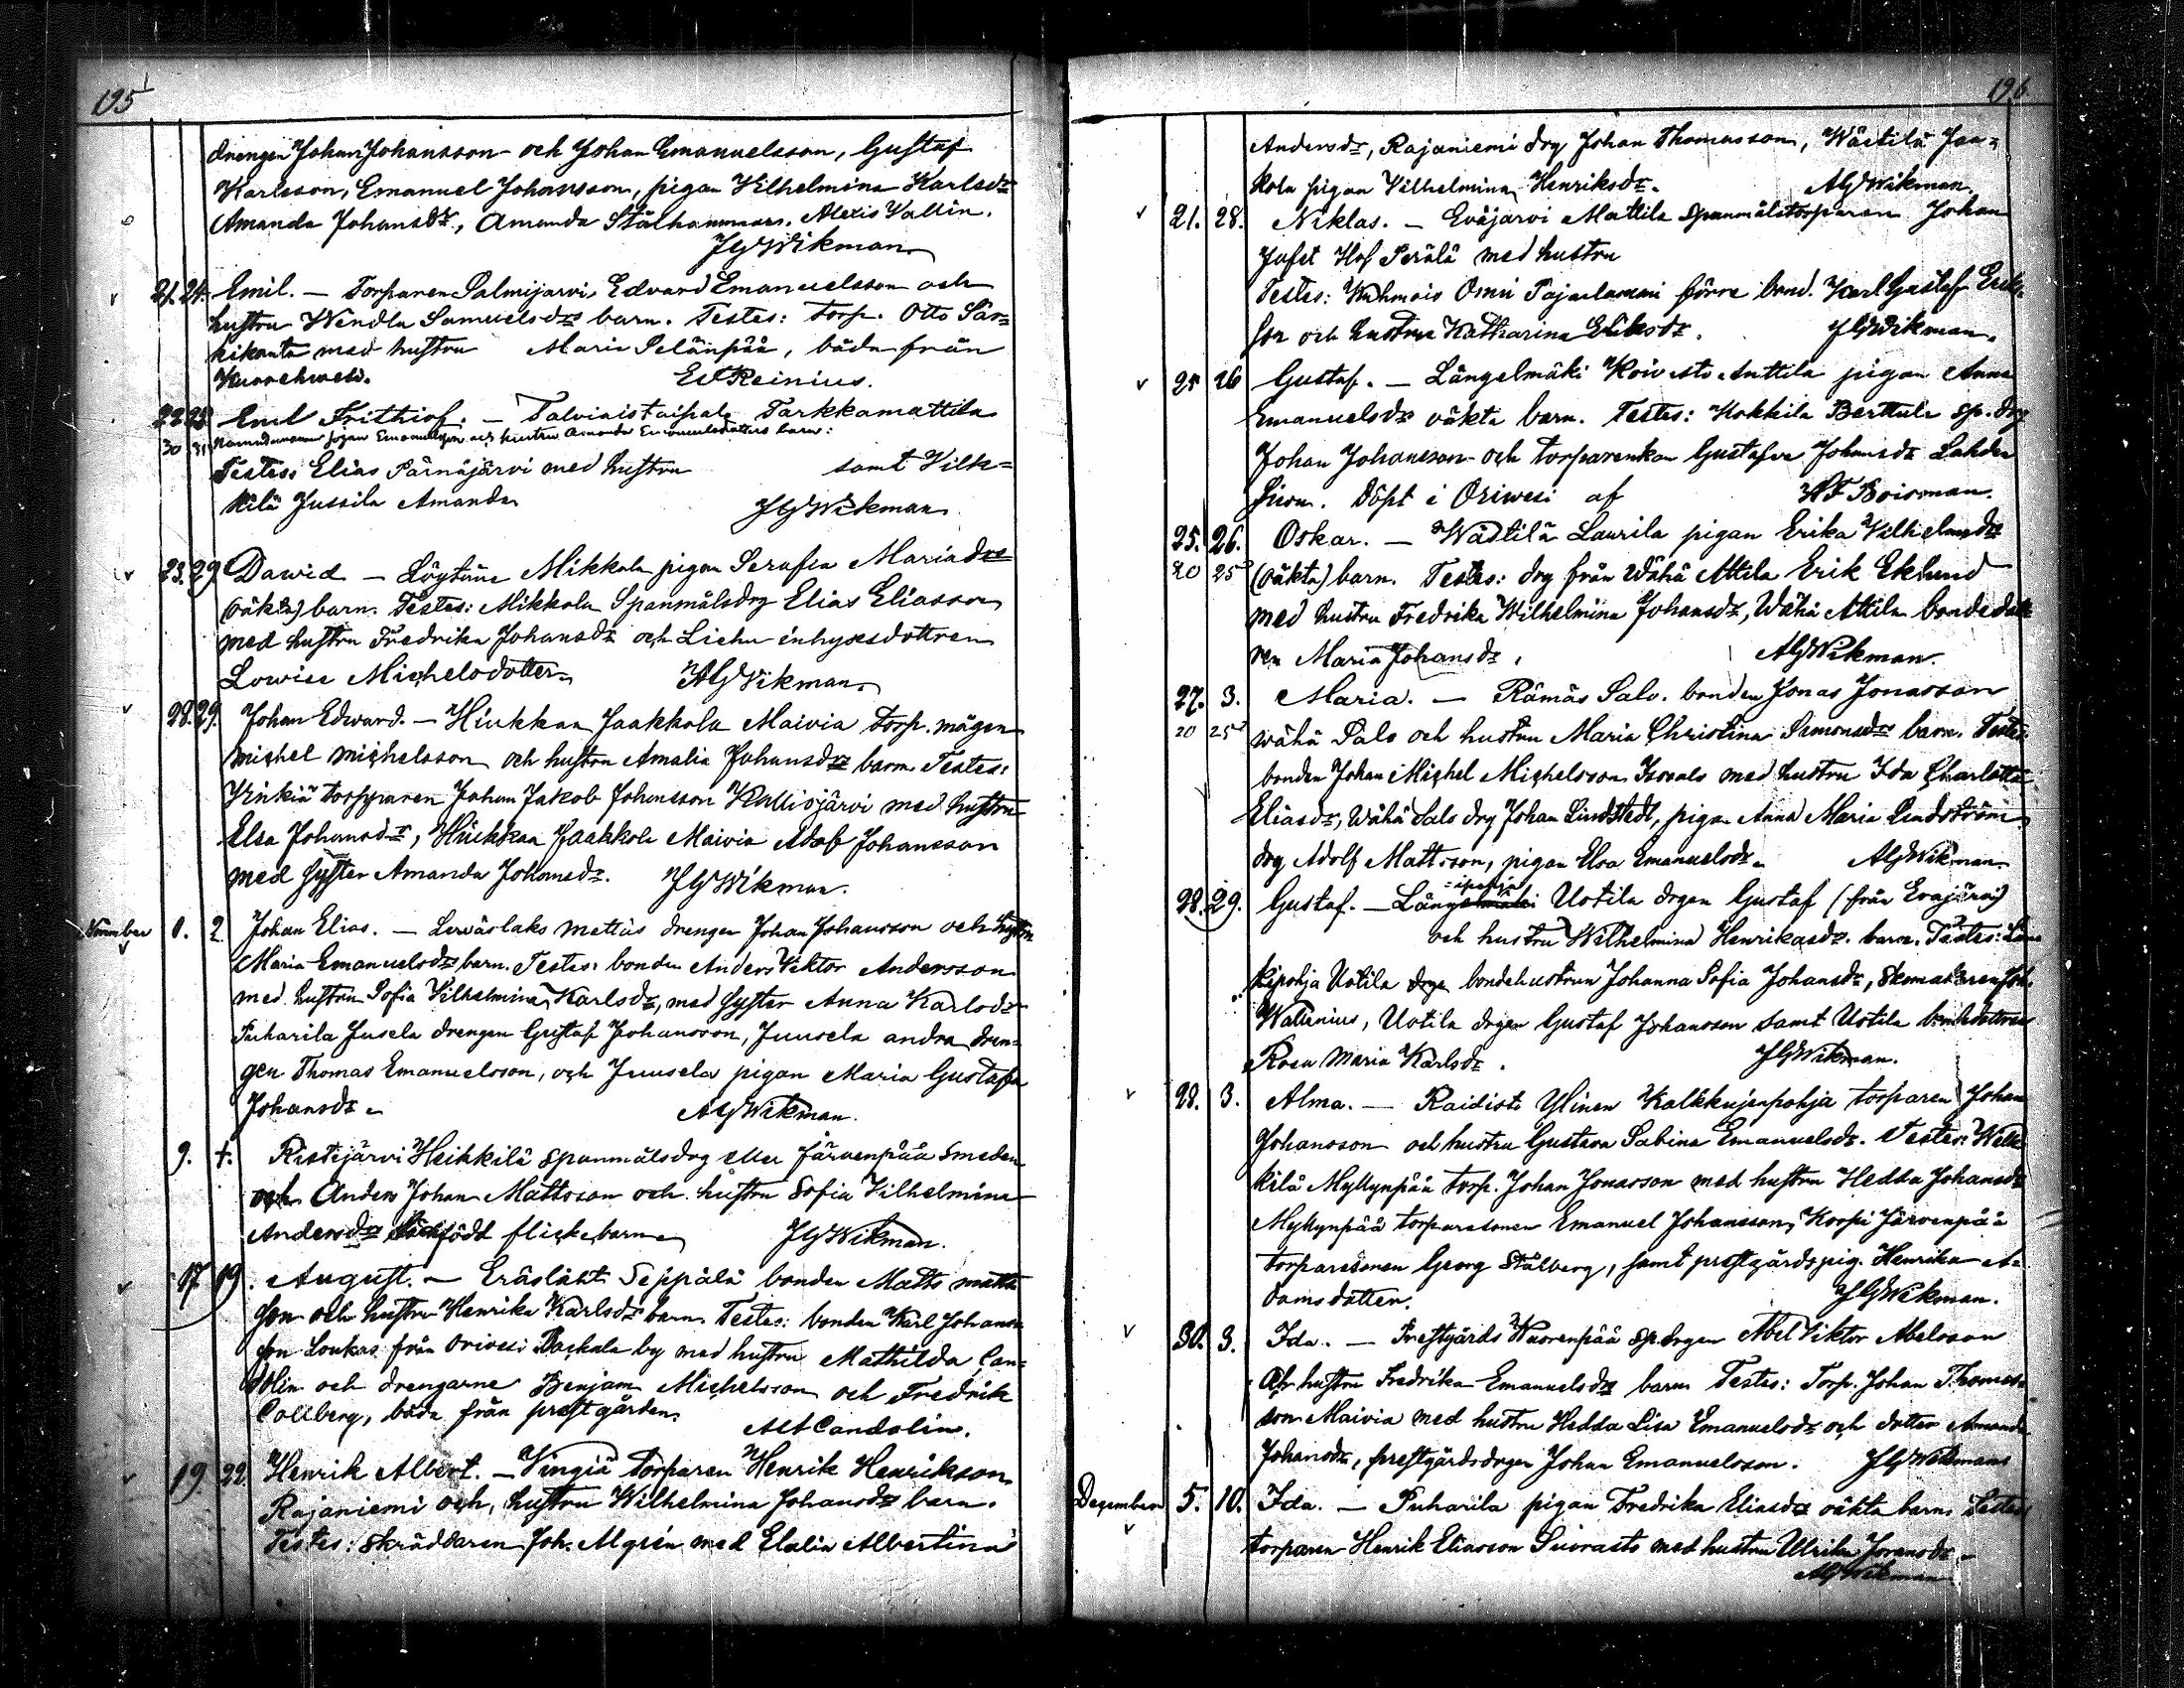 195
drengen Johan Johansson och Johan Emanuelsson, Gustaf
Karlsson, Emanuel Johansson, pigan Vilhelmina Karlsdr
Amanda Johansdr, Amanda Stålhammars. Alexis Vallin.
JGWikman
21. 24. Emil. — Torparen Salmijarvi Edvard Emanuelsson och
hustru Wendla Samuelsdrs barn. Testes: torp. Otto Sär=
kikanta med hustru Maria Selänpää, båda från
Kuorehwesi. Reinius.
22 25 Emil Frithiof. — Talviaistaipale Tarkkamattila
30 31 Johan Emanuelsson och hustru Amanda Emanuelsdotters barn:
Testes: Elias Pärnäjärvi med hustru samt Vilk=
kilä Jussila Amanda JGWikman
23. 29. Dawid — Löytäne Mikkola pigan Serafia Mariadrs
(oäkta) barn. Testes: Mikkola Spanmålsdrg Elias Eliasson
med hustru Fredrika Johansdr och Liehu inhysesdottren
Lowisa Michelsdotter AGWikman.
28. 29. Johan Edward. — Hiukkaa Jaakkola Maivia torp. mågen
Michel Michelsson och hustru Amalia Johansdrs barn. Testes:
Yinkiä torparen Johan Jakob Johansson Kallisjärvi med hustru
Elsa Johansdr, Hiukkaa Jaakkola Maivia Adolf Johansson
med syster Amanda Johansdr. JGWikman.
November 1. 2 Johan Elias. — Leväslaks Mattas drengen Johan Johansson och hustru
Maria Emanuelsdrs barn. Testes: bonden Anders Viktor Andersson
med hustru Sofia Vilhelmina Karlsdr, med syster Anna Karlsdr
Puharila Jusela drengen Gustaf Johansson, Juusela andra dren=
gen Thomas Emanuelsson, och Juusela pigan Maria Gustafva
Johansdr. AGWikman.
9. †. Ristijärvi Heikkilä spanmålsdrg eller Järvenpää smeden
och Anders Johan Mattsson och hustru Sofia Vilhelmina
Andersdrs dödfödt flickebarn JGWikman.
17 19. August. — Eräslaht Seppälä bonden Matts Matts
son och hustru Henrika Karlsdrs barn. Testes: bonden Karl Johans
son Loukas från Orivesi by med hustru Mathilda Can=
dolin och drengarne Benjam. Michelsson och Fredrik
Collberg, båda från prestgården. Candolin.
19. 22. Henrik Albert. — Vingiä torparen Henrik Henrikson
Rajaniemi och hustru Wilhelmina Johansdrs barn.
Testes: Skräddaren Joh. Algrén med Elalia Albertina
196
Andersdr, Rajaniemi drg Johan Thomasson, Wästilä Jaa=
kola pigan Vilhelmina Henriksdr. AGWikman.
21. 28. Niklas. — Eväjärvi Mattila Spanmålstorparen Johan
Jafet Hof Perälä med hustru
Testes: Kuhmois förre bond. Karl Gustaf Erik
son och hustru Katharina Eriksdr. JGWikman.
25 26 Gustaf. — Längelmäki Koivisto Anttila pigan Anna
Emanuelsdrs oäkta barn. Testes: Hokkila Berttula sp. drg
Johan Johansson och torparenkan Gustafva Johansdr Lahden
Döpt i Oriwesi af Boisman.
25. 26. Oskar. — Wästilä Laurila pigan Erika Vilhelmsdrs
20 25 (oäkta) barn. Testes: drg från Wähä Attila Erik Eklund
med hustru Fredrika Wilhelmina Johansdr, Wähä Attila bondedott
ren Maria Johansdr. AGWikman.
27. 3. Maria. — Rämäs Salo. bonden Jonas Jonasson
20 25 Wähä Salo och hustru Maria Christina Simonsdrs barn. Testes:
bonden Johan Michel Michelsson Isosalo med hustru Ida Charlotta
Eliasdr, Wähä Salo drg Johan Lindstedt, pigan Anna Maria Lindström
drg Adolf Mattsson, pigan Elsa Emanuelsdr. AGWikman
=ipohja
28. 29. Gustaf. — Längelmäki Uotila drgen Gustaf (från Eväjärvi)
och hustru Wilhelmina Henriksdr. barn. Testes: Län
kipohja Uotila drgn bondehustrun Johanna Sofia Johansdr, skomakaren Joh.
Walenius, Uotila drgen Gustaf Johansson samt Uotila bondedottren
Rosa Maria Karlsdr. JGWikman.
28. 3. Alma. — Raidisto Ylinen Kalkkujenpohja torparen Johan
Johansson och hustru Gustava Sabina Emanuelsdr. Testes: Wilk
kilä Myllynpää torp. Johan Jonasson med hustru Hedda Johansdr
Myllynpää torparesonen Emanuel Johansson, Korpi Järvenpää
torparesonen Georg Stålberg, samt prestgårdspig. Henrika A=
damsdotter. JGWikman.
30. 3. Ida. — Prestgårds Wuorenpää sp. drgen Abel Viktor Abelsson
och hustru Fredrika Emanuelsdrs barn Testes: Torp. Johan Thomas=
son Maivia med hustru Hedda Lisa Emanuelsdr och dotter Amanda
Johansdr, prestgårdsdrgen Johan Emanuelsson. JGWikman
December 5. 10. Ida. — Puharila pigan Fredrika Eliasdrs oäkta barn. Testes
torparen Henrik Eliasson Suorasto med hustru Ulrika
AGWikman